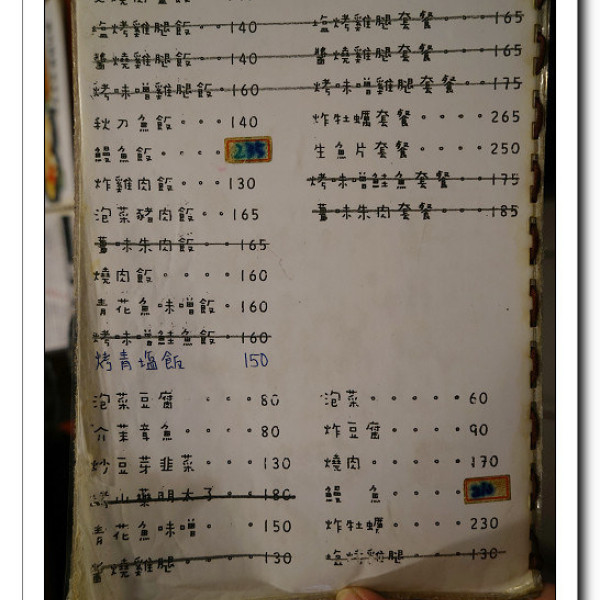 鹽烤雞腿飯・・140
醬燒雞腿飯・・140
烤味噌雞腿飯・160
秋刀魚飯・・・140
鰻魚飯・・・・235
炸雞肉飯・・・130
泡菜豬肉飯・・165
薑味朱肉飯・・165
燒肉飯・・・・・160
青花魚味噌飯・160
烤味噌鮭魚飯・160
烤青塩飯 150
鹽烤雞腿套餐・・・165
醬燒雞腿套餐・・・165
烤味噌雞腿套餐・・175
炸牡蠣套餐・・・・265
生魚片套餐・・・・250
烤味噌鮭魚套餐・・175
薑味朱肉套餐・・・185
泡菜豆腐・・・80
介芥章魚・・・80
炒豆芽韭菜・・・130
山藥明太子・・180
青花魚味噌・・・150
醬燒雞腿・・・・130
泡菜・・・・・60
炸豆腐・・・・90
燒肉・・・・・170
鰻 魚・・・・210
炸牡蠣・・・・230
鹽烤雞腿・・・130